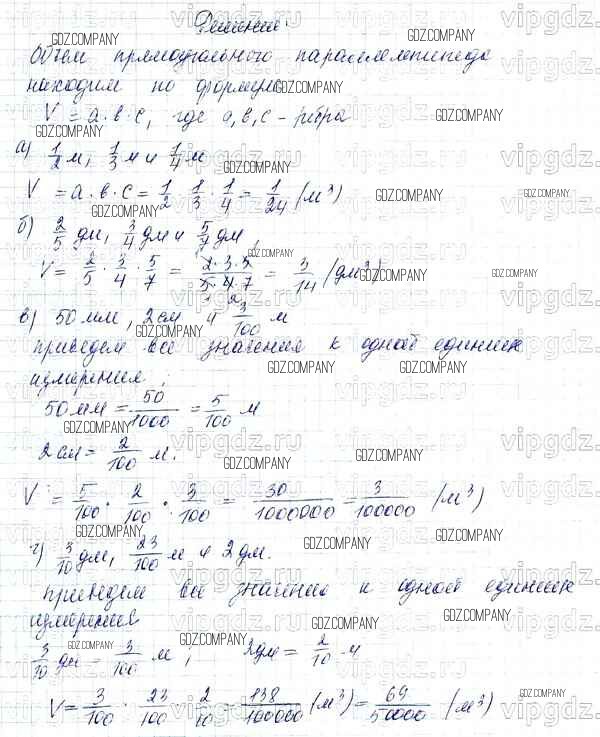 Решение:
Объем прямоугольного параллелепипеда
находим по формуле
V = a·в·c, где a,в,c - рёбра
а) 1/2 м, 1/3 м и 1/4 м
V = a·в·c = 1/2 · 1/3 · 1/4 = 1/24 (м³)
б) 2/5 дм, 3/4 дм и 5/7 дм
V = 2/5 · 3/4 · 5/7 = 2·3·5/5·4·7 = 3/14 (дм³)
в) 50 мм, 2 см и 3/100 м
приведем все значения к одной единице
измерения:
50 мм = 50/1000 = 5/100 м
2 см = 2/100 м.
V = 5/100 · 2/100 · 3/100 = 30/1000000 = 3/100000 (м³)
г) 3/10 дм, 23/100 м и 2 дм.
приведем все значения к одной единице
измерения
3/10 дм = 3/100 м, 2 дм = 2/10 м
V = 3/100 · 23/100 · 2/10 = 138/100000 (м³) = 69/50000 (м³)